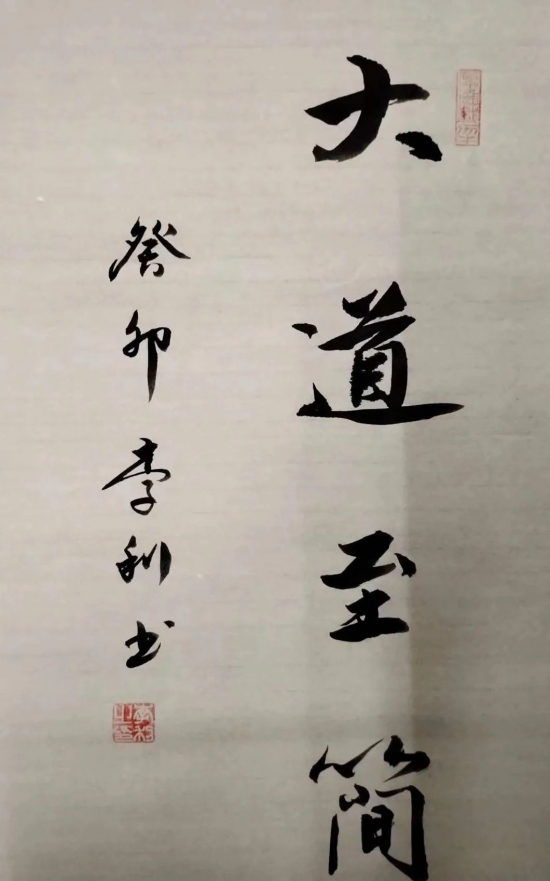 大道至简
癸卯李利书